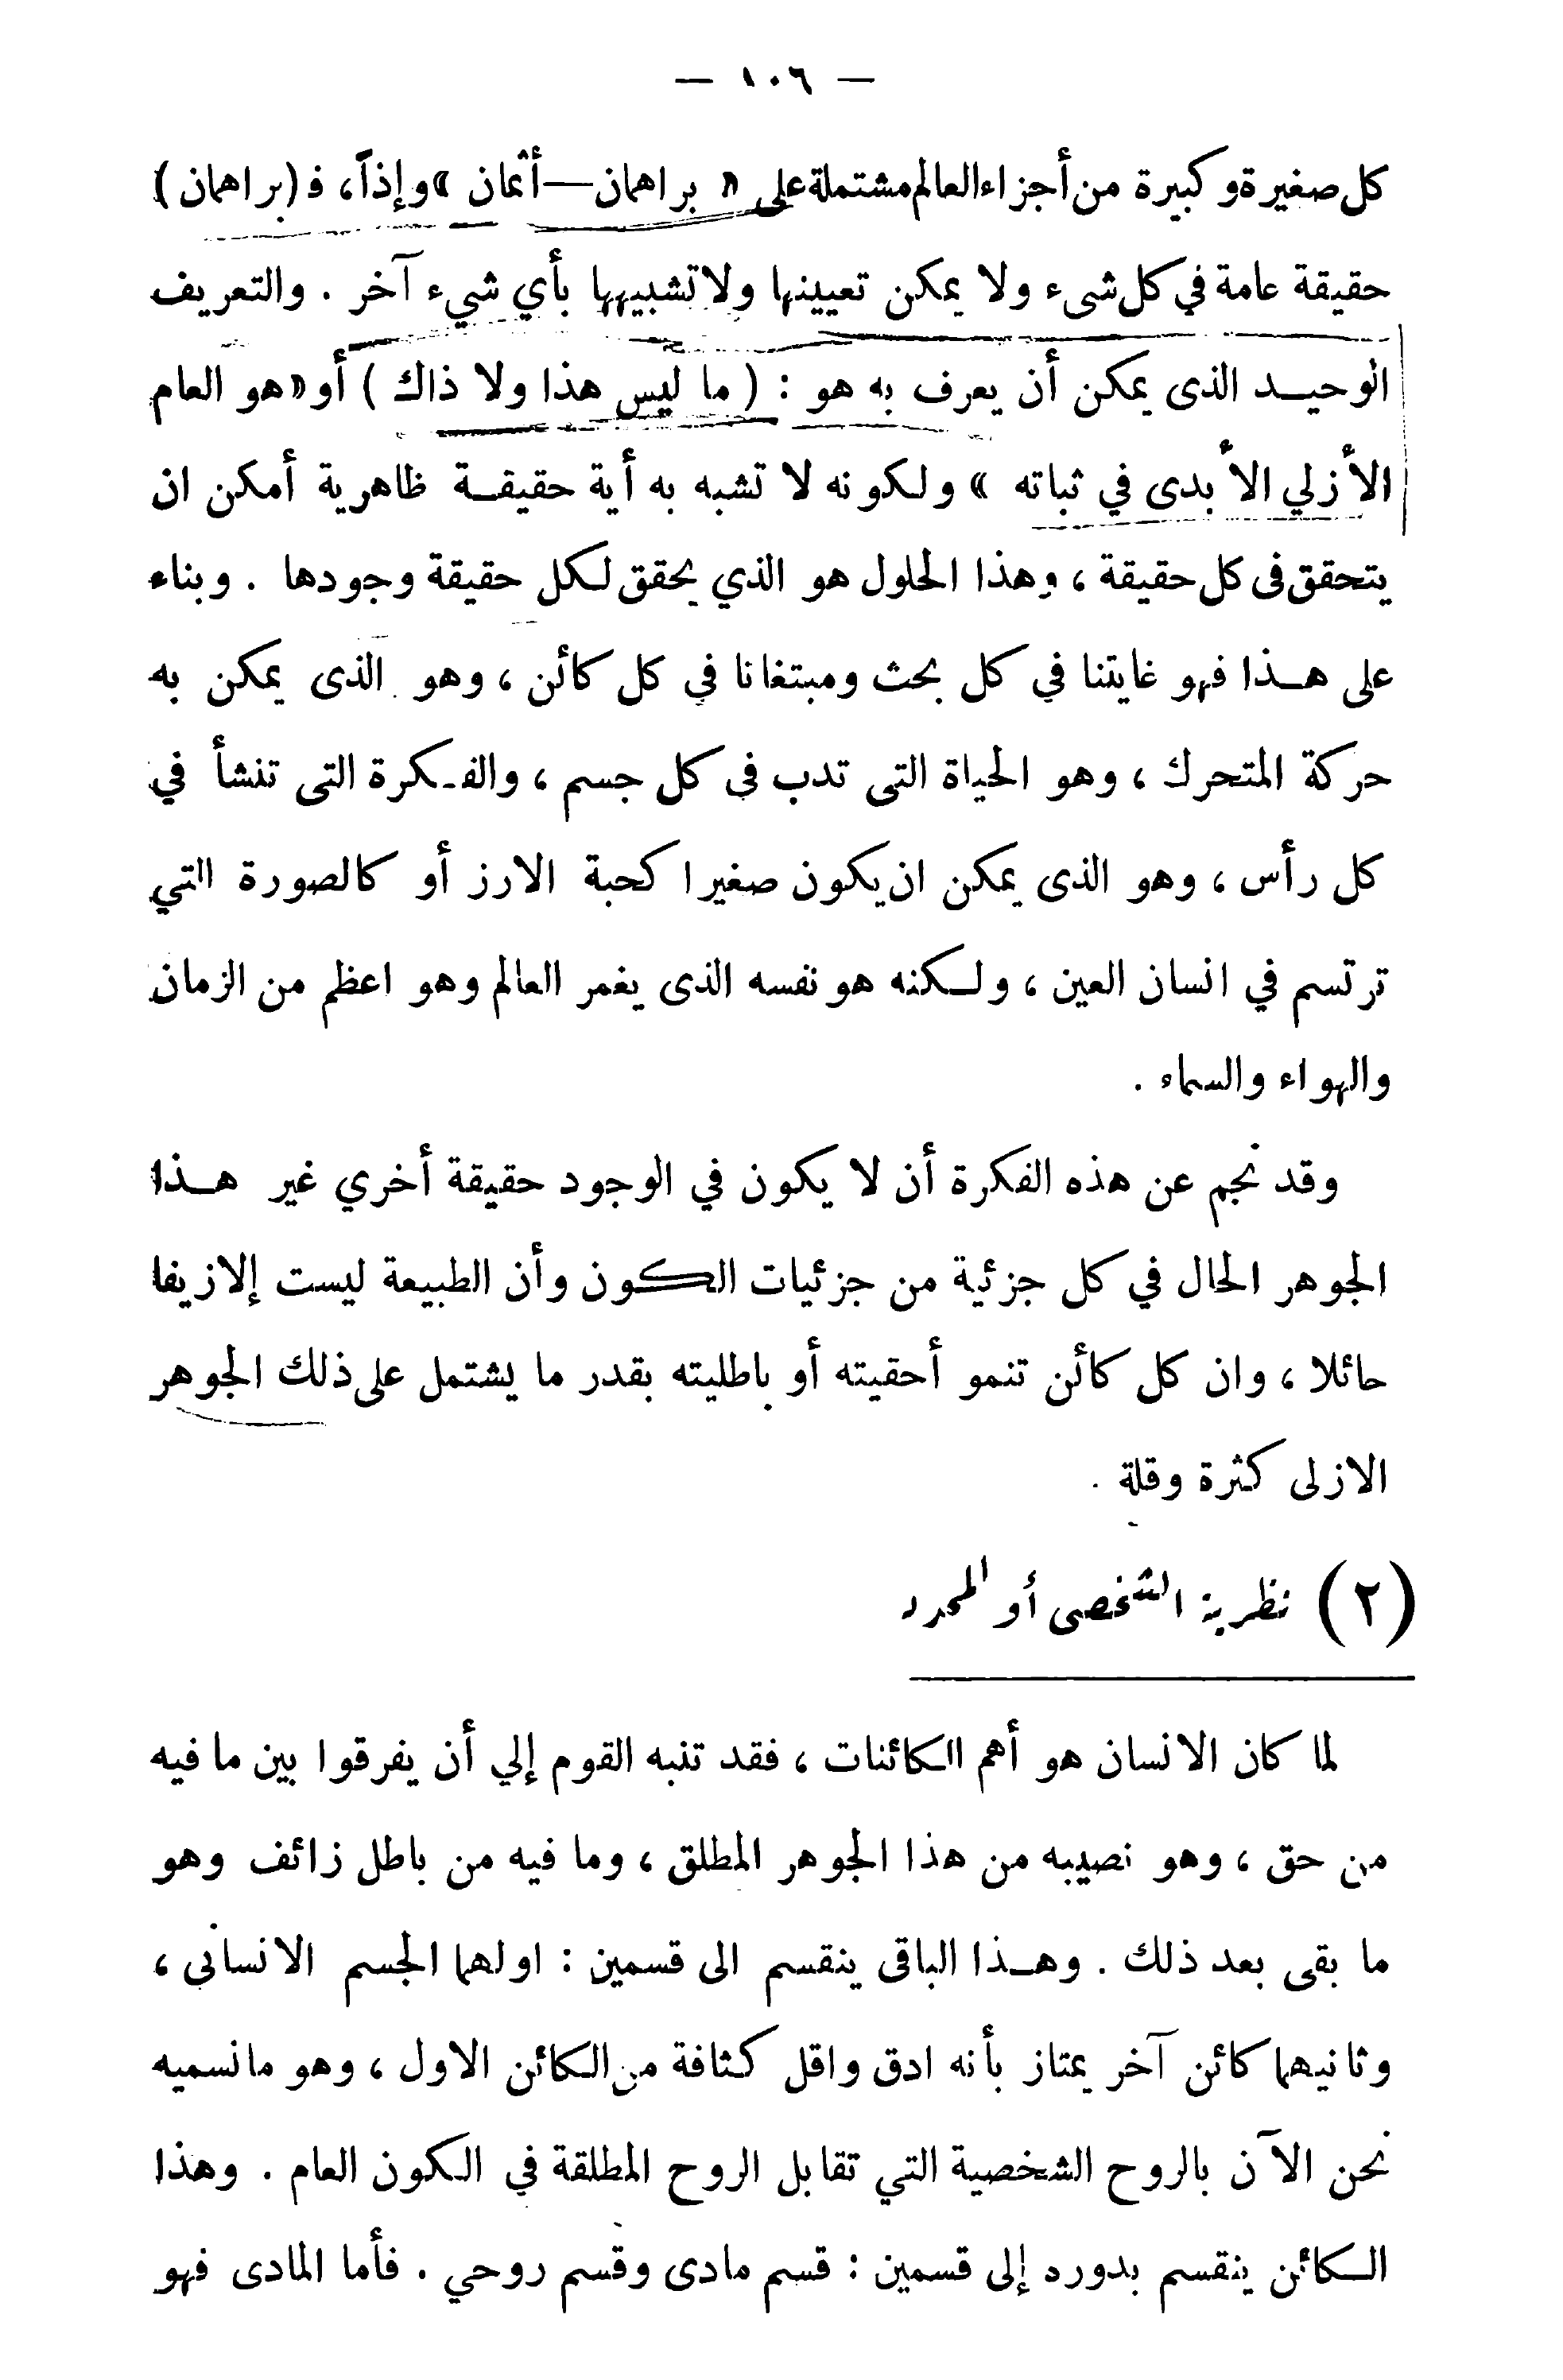 — ١٠٦ —
كل صغيرة وكبيرة من أجزاء العالم مشتملة على « براهمان — أتمان » وإذاً، فـ (براهمان)
حقيقة عامة في كل شىء ولا يمكن تعيينها ولا تشبيهها بأي شيء آخر . والتعريف
الوحيد الذى يمكن أن يعرف به هو : ( ما ليس هذا ولا ذاك ) أو « هو العام
الأزلي الأبدى في ثباته » ولكونه لا تشبه به أية حقيقة ظاهرية أمكن ان
يتحقق فى كل حقيقة ، وهذا الحلول هو الذي يحقق لكل حقيقة وجودها . وبناء
على هذا فهو غايتنا في كل بحث ومبتغانا في كل كائن ، وهو الذى يمكن به
حركة المتحرك ، وهو الحياة التى تدب فى كل جسم ، والفكرة التى تنشأ في
كل رأس ، وهو الذى يمكن ان يكون صغيرا كحبة الارز أو كالصورة التي
ترتسم في انسان العين ، ولكنه هو نفسه الذى يغمر العالم وهو اعظم من الزمان
والهواء والسماء .
وقد نجم عن هذه الفكرة أن لا يكون في الوجود حقيقة أخري غير هذا
الجوهر الحال في كل جزئية من جزئيات الكون وأن الطبيعة ليست إلا زيفا
حائلا ، وان كل كائن تنمو أحقيته أو باطليته بقدر ما يشتمل على ذلك الجوهر
الازلى كثرة وقلة .
(٢) نظرية الشخصى أو المحدد
لما كان الانسان هو أهم الكائنات ، فقد تنبه القوم إلي أن يفرقوا بين ما فيه
من حق ، وهو نصيبه من هذا الجوهر المطلق ، وما فيه من باطل زائف وهو
ما بقى بعد ذلك . وهذا الباقى ينقسم الى قسمين : اولهما الجسم الانسانى ،
وثانيهما كائن آخر يمتاز بأنه ادق واقل كثافة من الكائن الاول ، وهو ما نسميه
نحن الآن بالروح الشخصية التي تقابل الروح المطلقة في الكون العام . وهذا
الكائن ينقسم بدوره إلى قسمين : قسم مادى وقسم روحي . فأما المادى فهو